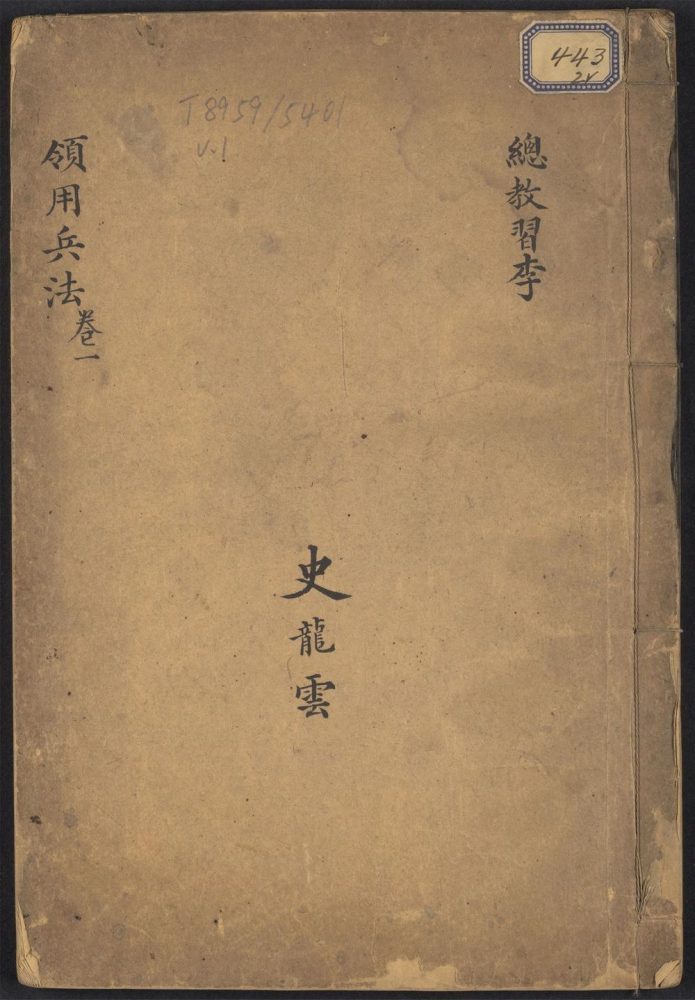 443
2v
T 8959/5401
v.1
總教習李
史龍雲
領用兵法卷一